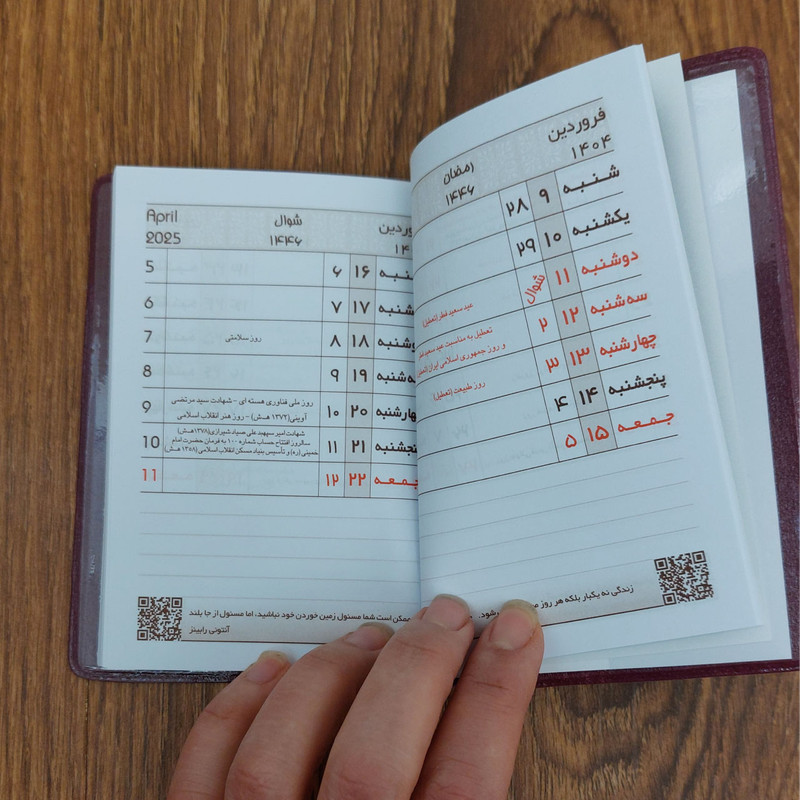 فروردین
۱۴۰۴
رمضان
۱۴۴۶
شنبه ۹ ۲۸
یکشنبه ۱۰ ۲۹
دوشنبه ۱۱ شوال عید سعید فطر (تعطیل)
سه‌شنبه ۱۲ ۲ تعطیل به مناسبت عید سعید فطر
و روز جمهوری اسلامی ایران (تعطیل)
چهارشنبه ۱۳ ۳ روز طبیعت (تعطیل)
پنجشنبه ۱۴ ۴
جمعه ۱۵ ۵
زندگی نه یکبار بلکه هر روز
شوال
۱۴۴۶
April
2025
۱۶ ۶ 5
۱۷ ۷ 6
۱۸ ۸ روز سلامتی 7
۱۹ ۹ 8
۲۰ ۱۰ روز ملی فناوری هسته ای - شهادت سید مرتضی
آوینی (۱۳۷۲ هـ.ش) - روز هنر انقلاب اسلامی 9
۲۱ ۱۱ شهادت امیر سپهبد علی صیاد شیرازی (۱۳۷۸ هـ.ش)
سالروز افتتاح حساب شماره ۱۰۰ به فرمان حضرت امام
خمینی (ره) و تأسیس بنیاد مسکن انقلاب اسلامی (۱۳۵۸ هـ.ش) 10
جمعه ۲۲ ۱۲ 11
ممکن است شما مسئول زمین خوردن خود نباشید، اما مسئول از جا بلند
آنتونی رابینز